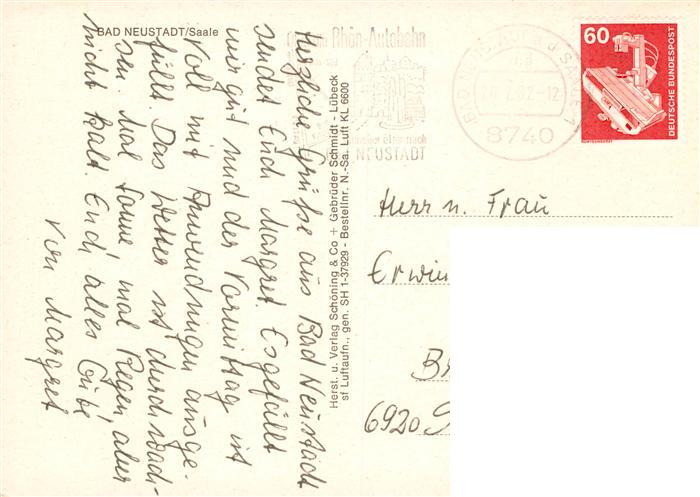 BAD NEUSTADT/Saale
Herzliche Grüße aus Bad Neustadt
sendet Euch Margret. Es gefällt
mir gut und der Vormittag ist
voll mit Anwendungen ausge-
füllt. Das Wetter ist durchwach-
sen. Mal Sonne, mal Regen, aber
nicht kalt. Euch alles Liebe
von Margret
Herst. u. Verlag Schöning & Co + Gebrüder Schmidt - Lübeck
sf Luftaufn., gen. SH 1-37929 - Bestellnr. N.-Sa. Luft KL 6600
Rhön-Autobahn
nach
NEUSTADT
8740
60
DEUTSCHE BUNDESPOST
Herr u. Frau
Erwin
6920